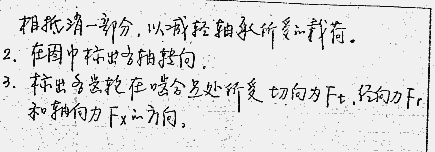 相抵消一部分，以减轻轴承所受的载荷。
2. 在图中标出各轴转向.
3. 标出各齿轮在啮合点处所受切向力Ft.径向力Fr
和轴向力Fx的方向.